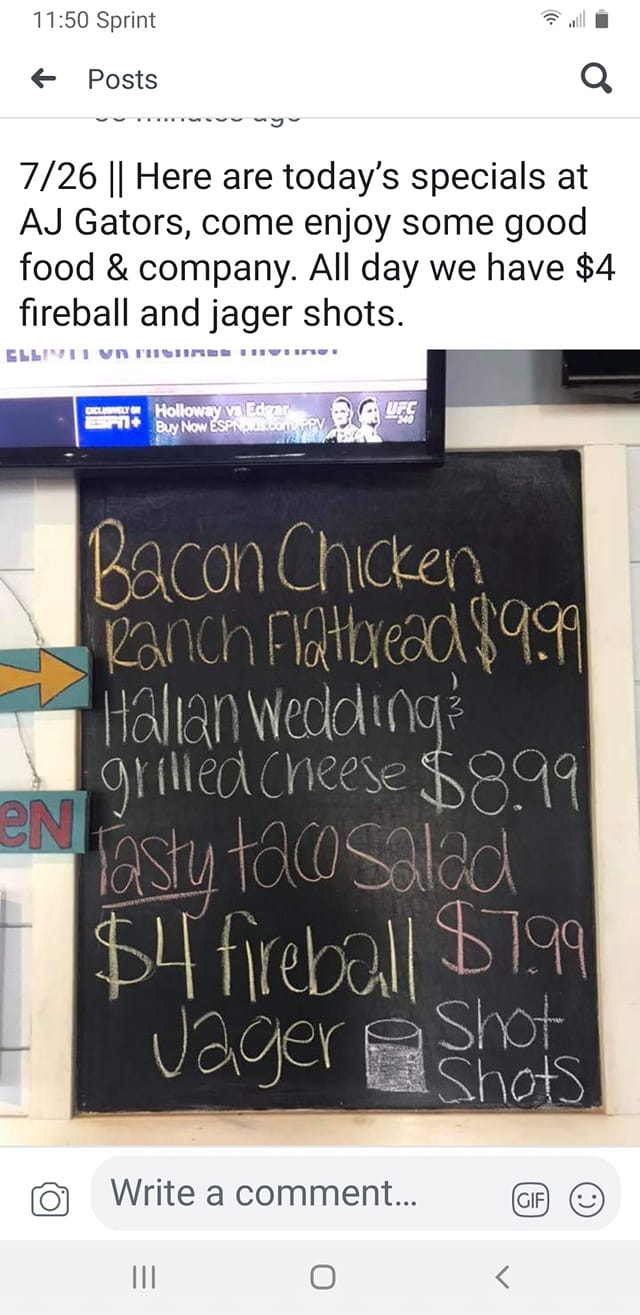 11:50 Sprint
Posts
minutes ago
7/26 || Here are today's specials at
AJ Gators, come enjoy some good
food & company. All day we have $4
fireball and jager shots.
EXCLUSIVELY ON
ESPN+
Holloway vs Edgar
Buy Now ESPNplus.com/PPV
UFC
240
Bacon Chicken
Ranch Flatbread $9.99
Italian Wedding &
grilled Cheese $8.99
eN
Tasty taco Salad
$7.99
$4 fireball
Jager
Shot
Shots
Write a comment...
GIF